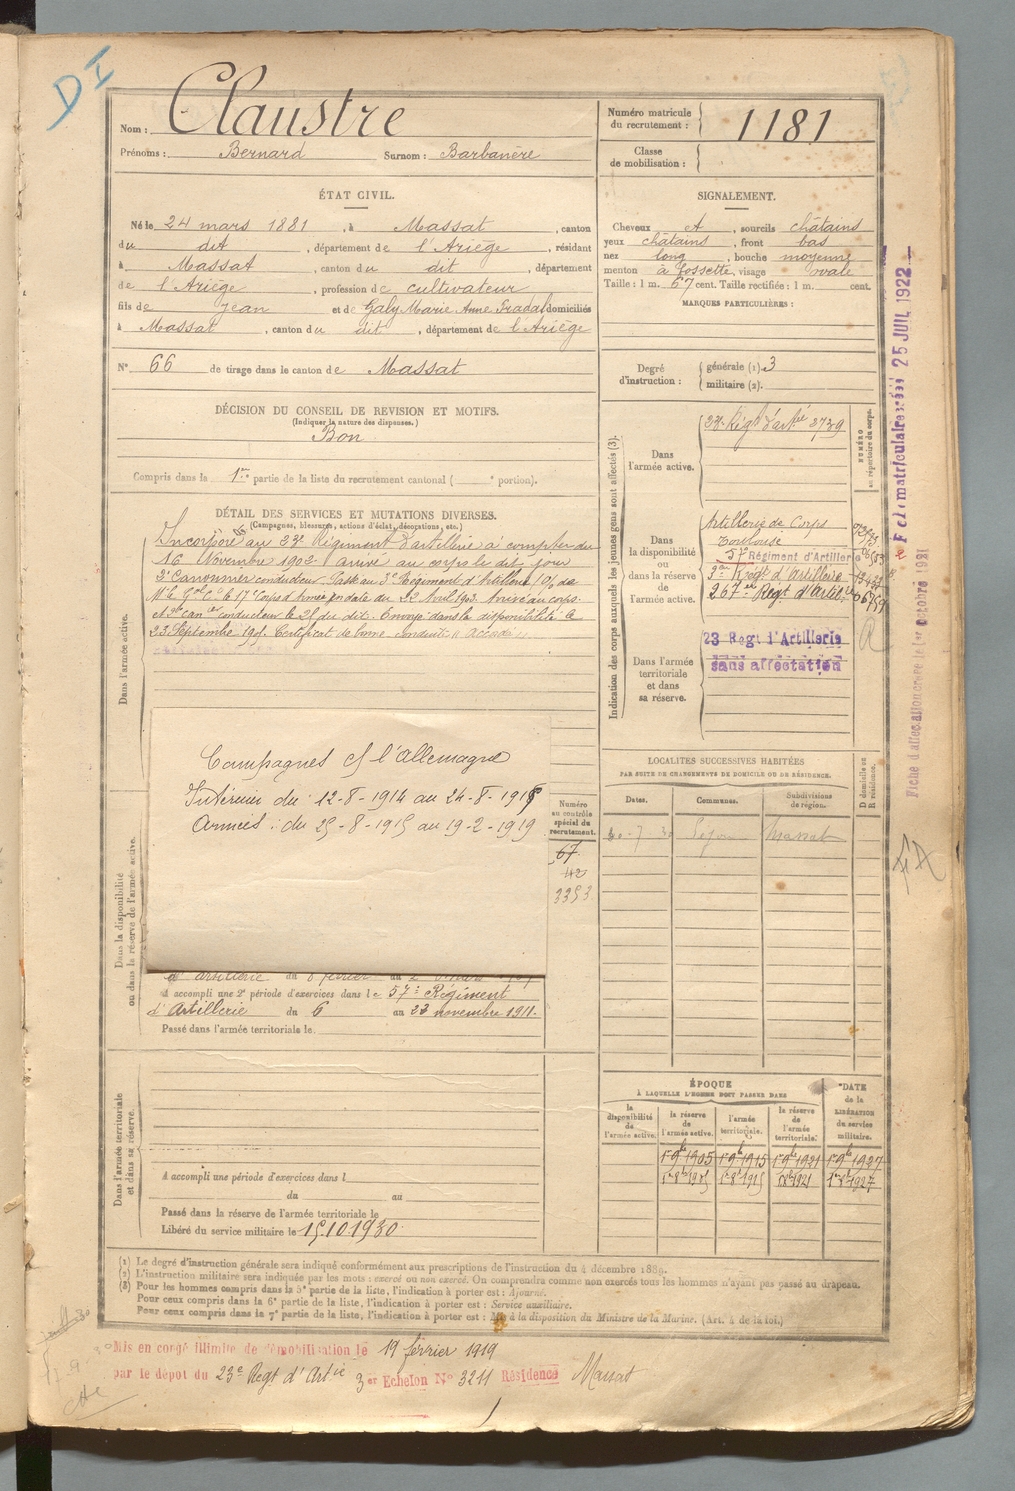 D I
Nom : Claustre
Prénoms : Bernard Surnom : Barbanère
Numéro matricule du recrutement : 1181
Classe de mobilisation :
ÉTAT CIVIL.
Né le 24 mars 1881, à Massat, canton
du dit, département de l'Ariège, résidant
à Massat, canton du dit, département
de l'Ariège, profession de cultivateur
fils de Jean et de Galy Marie Anne Fradal domiciliés
à Massat, canton du dit, département de l'Ariège
N° 66 de tirage dans le canton de Massat
SIGNALEMENT.
Cheveux et, sourcils châtains
yeux châtains, front bas
nez long, bouche moyenne
menton à fossette, visage ovale
Taille : 1 m. 67 cent. Taille rectifiée : 1 m. cent.
MARQUES PARTICULIÈRES :
Degré d'instruction : générale (1). 3
militaire (2).
DÉCISION DU CONSEIL DE REVISION ET MOTIFS.
(Indiquer la nature des dispenses.)
Bon
Compris dans la 1re partie de la liste du recrutement cantonal ( e portion).
DÉTAIL DES SERVICES ET MUTATIONS DIVERSES.
(Campagnes, blessures, actions d'éclat, décorations, etc.)
Dans l'armée active.
Incorporé au 23e Régiment d'artillerie à compter du
16 Novembre 1902 arrivé au corps le dit jour
2e Canonnier conducteur. Passé au 3e Régiment d'Artillerie
le 17e Corps d'Armée en date du 22 Avril 1903. Arrivé au corps
et 2e can er conducteur le 25 du dit. Envoyé dans la disponibilité le
23 Septembre Certificat de bonne conduite accordé
Campagnes c/ l'Allemagne
Intérieur du 12-8-1914 au 24-8-1915
Armées : du 25-8-1915 au 19-2-1919
Numéro au contrôle spécial du recrutement.
67
42
3353
Dans la disponibilité ou dans la réserve de l'armée active.
d'artillerie du 8 février au
A accompli une 2e période d'exercices dans le 57e Régiment
d'Artillerie du 6 au 23 novembre 1911.
Passé dans l'armée territoriale le
Dans l'armée territoriale et dans sa réserve.
A accompli une période d'exercices dans l
du au
Passé dans la réserve de l'armée territoriale le
Libéré du service militaire le 15.10.1930
Indication des corps auxquels les jeunes gens sont affectés (3).
NUMÉRO au répertoire du corps.
Dans l'armée active.
23e Régt d'artie 3739
Dans la disponibilité ou dans la réserve de l'armée active.
Artillerie de Corps
Toulouse
57e Régiment d'Artillerie
3e Regt d'artillerie
267e Régt d'Artillie
Dans l'armée territoriale et dans sa réserve.
23 Regt d'Artillerie
sans affectation
LOCALITÉS SUCCESSIVES HABITÉES
PAR SUITE DE CHANGEMENTS DE DOMICILE OU DE RÉSIDENCE.
Dates. Communes. Subdivisions de région. D domicile ou R résidence.
Massat
ÉPOQUE
À LAQUELLE L'HOMME DOIT PASSER DANS
la disponibilité de l'armée active. la réserve de l'armée active. l'armée territoriale. la réserve de l'armée territoriale.
DATE de la LIBÉRATION du service militaire.
1er 9bre 1905 1er 9bre 1915 1er 9bre 1921 1er 9bre 1927
Fiche d'affectation créée le 1er octobre 1921
25 JUIL 1922
(1) Le degré d'instruction générale sera indiqué conformément aux prescriptions de l'instruction du 4 décembre 1889.
(2) L'instruction militaire sera indiquée par les mots : exercé ou non exercé. On comprendra comme non exercés tous les hommes n'ayant pas passé au drapeau.
(3) Pour les hommes compris dans la 5e partie de la liste, l'indication à porter est : Ajourné.
Pour ceux compris dans la 6e partie de la liste, l'indication à porter est : Service auxiliaire.
Pour ceux compris dans la 7e partie de la liste, l'indication à porter est : Mis à la disposition du Ministre de la Marine. (Art. 4 de la loi.)
Mis en congé illimité de démobilisation le 19 février 1919
par le dépôt du 23e Regt d'Artie 3er Echelon N° 3211 Résidence Massat